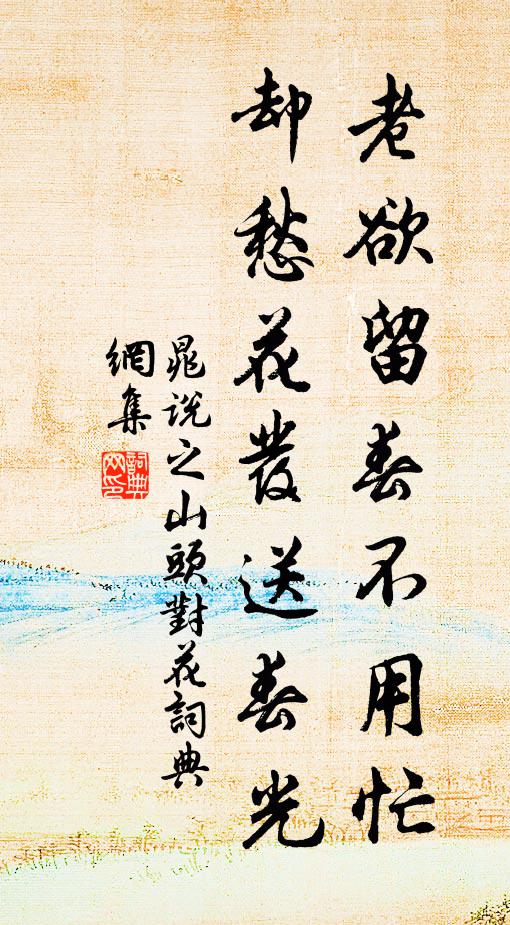 老欲留春不用忙
却愁花發送春光
晁說之山頭對花詞典
網集
詞典
网印